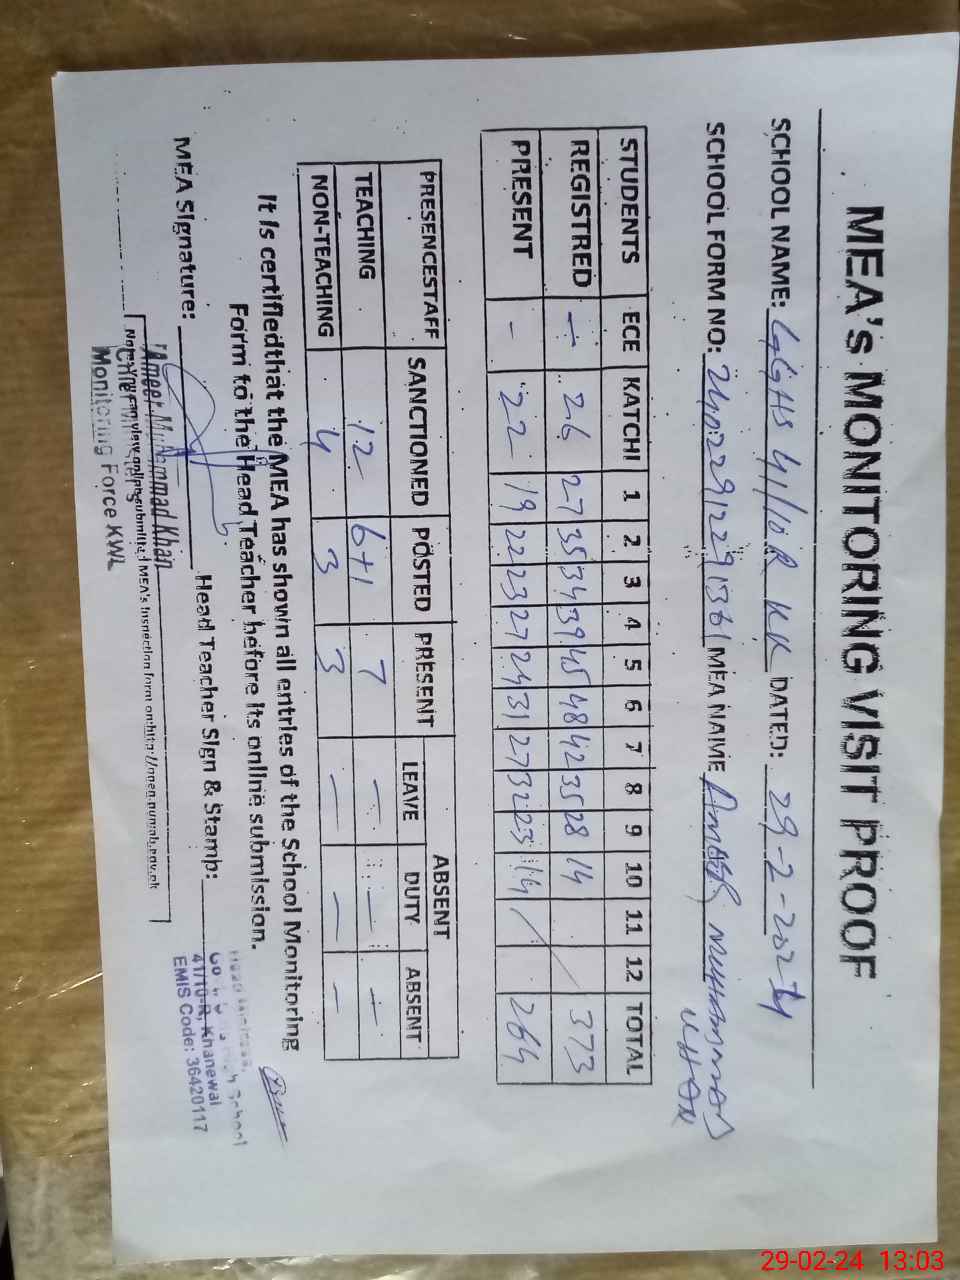 MEA's MONITORING VISIT PROOF
SCHOOL NAME: GGHS 41/10R KK DATED: 29-2-2024
SCHOOL FORM NO: MEA NAME Ameer MUHAMMAD KHAN
STUDENTS ECE KATCHI 1 2 3 4 5 6 7 8 9 10 11 12 TOTAL
REGISTRED — 26 27 35 34 39 45 48 42 35 28 14 373
PRESENT - 22 19 22 23 27 24 31 27 32 23 14 264
ABSENT
PRESENCESTAFF SANCTIONED POSTED PRESENT LEAVE DUTY ABSENT
TEACHING 12 6+1 7 — — —
NON-TEACHING 4 3 3 — — —
It is certifiedthat the MEA has shown all entries of the School Monitoring
Form to the Head Teacher before its online submission.
MEA Signature: Head Teacher Sign & Stamp:
School
41/10-R, Khanewal
EMIS Code: 36420117
Ameer Muhammad Khan
Note: You can view online submitted MEA's Inspection form on http://open.punjab.gov.pk
Monitoring Force KWL
29-02-24 13:03